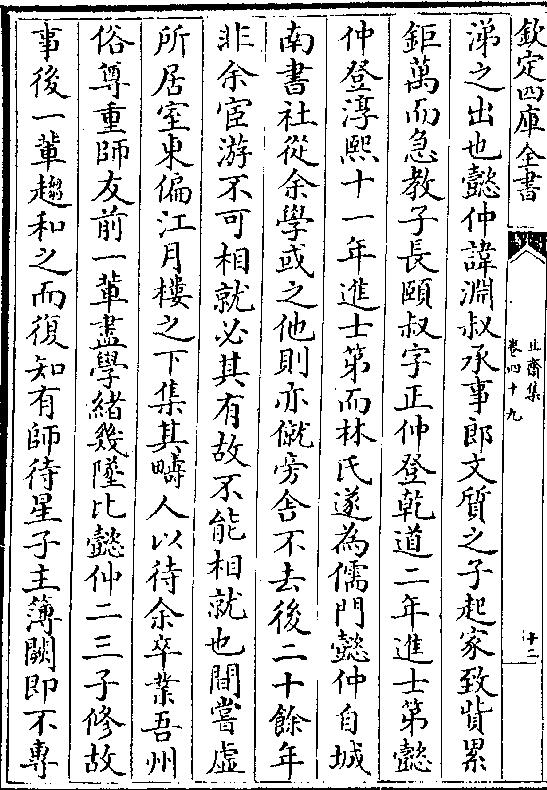 欽定四庫全書
止齋集
卷四十九
十二
涕之出也懿仲諱淵叔承事郎文質之子起家致貲累
鉅萬而急教子長頤叔字正仲登乾道二年進士第懿
仲登淳熙十一年進士第而林氏遂為儒門懿仲自城
南書社從余學或之他則亦僦旁舍不去後二十餘年
非余宦游不可相就必其有故不能相就也間嘗虛
所居室東偏江月樓之下集其疇人以待余卒業吾州
俗尊重師友前一輩盡學緒幾墜比懿仲二三子修故
事後一輩趨和之而復知有師待星子主簿闕即不專